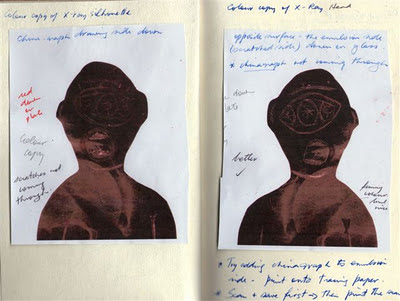 Colour copy of X-ray Silhouette
Chinagraph drawing side down
red
down
on
Colour
copy
scratches not
coming
through
Colour copy of X-Ray Head
opposite surface - the emulsion side
(scratched side) down on glass.
* chinagraph not coming through
down
better
✓
funny
colour
but
nice
* Try adding chinagraph to emulsion
side - print onto tracing paper.
* Scan + save first, then print the